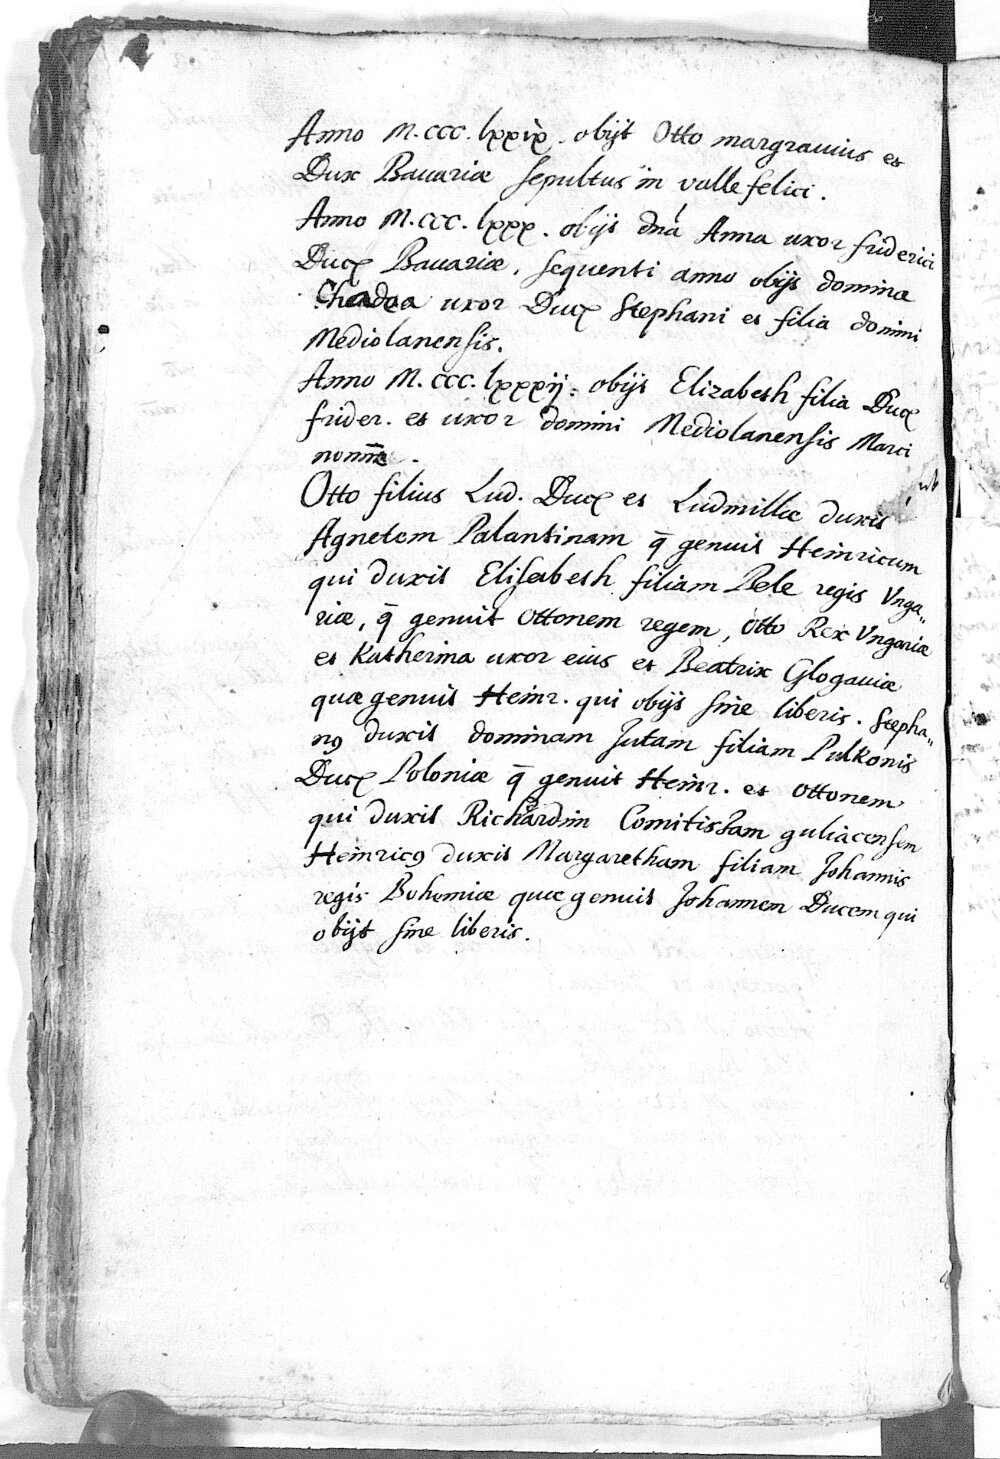 Anno M.CCC.lxxix. obijt Otto margrauius et
Dux Bauariæ sepultus in valle felici.
Anno M.CCC.lxxx. obijt dna Anna uxor friderici
Ducꝭ Bauariæ, sequenti anno obijt domina
uxor Ducꝭ Stephani et filia domini
Mediolanensis.
Anno M.CCC.lxxxij. obijt Elizabeth filia Ducꝭ
frider. et uxor domini Mediolanensis Marci
nomīe.
Otto filius Lud. Ducꝭ et Ludmillæ duxit
Agnetem Palantinam q̄ genuit Heinricum
qui duxit Elisabeth filiam Bele regis Vnga„
riæ, q̄ genuit Ottonem regem, Otto Rex Vngariæ
et Katherina uxor eius et Beatrix Glogauiæ
quæ genuit Heinr. qui obijt sine liberis. Stepha„
nꝰ duxit dominam Jutam filiam Pulkonis
Ducꝭ Poloniæ q̄ genuit Heinr. et Ottonem
qui duxit Richardim Comitissam guliacensem
Heinricꝰ duxit Margaretham filiam Johannis
regis Bohemiæ quæ genuit Johannem Ducem qui
obijt sine liberis.